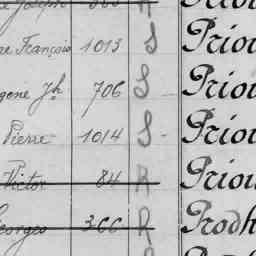 Joseph
François 1013 S Priou
gene Jh 706 S Priou
Pierre 1014 S Priou
Victor 84 R Priou
Georges 366 R Prodh